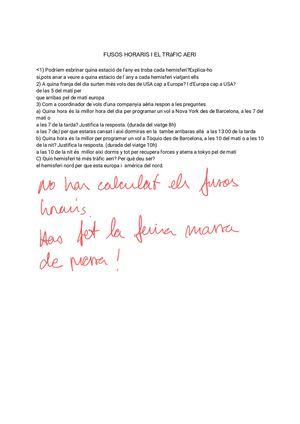 FUSOS HORARIS I EL TRàFIC AERI
<1) Podriem esbrinar quina estació de l'any es troba cada hemisferi?Explica-ho
si,pots anar a veure a quina estació de l'any a cada hemisferi viatjant ells
2) A quina franja del dia surten més vols des de USA cap a Europa? I d'Europa cap a USA?
de las 5 del matí per
que arribas pel de mati europa
3) Com a coordinador de vols d'una companyia aèria respon a les preguntes
a) Quina hora és la millor hora del dia per programar un vol a Nova York des de Barcelona, a les 7 del
matí o
a les 7 de la tarda? Justifica la resposta. (durada del viatge 8h)
a las 7 de,l per que estaras cansat i així dormiras en la tambe arribaras allà a las 13:00 de la tarda
b) Quina hora és la millor per programar un vol a Tòquio des de Barcelona, a les 10 del matí o a les 10
de la nit? Justifica la resposta. (durada del viatge 10h)
a las 10 de la nit és millor així dorms y tot per recupera forces y aterra a tokyo pel de matí
C) Quin hemisferi té més tràfic aeri? Per què deu ser?
el hemisferi nord per que esta europa i américa del nord.
No han calculat els fusos
horaris.
Has fet la feina massa
de pressa!